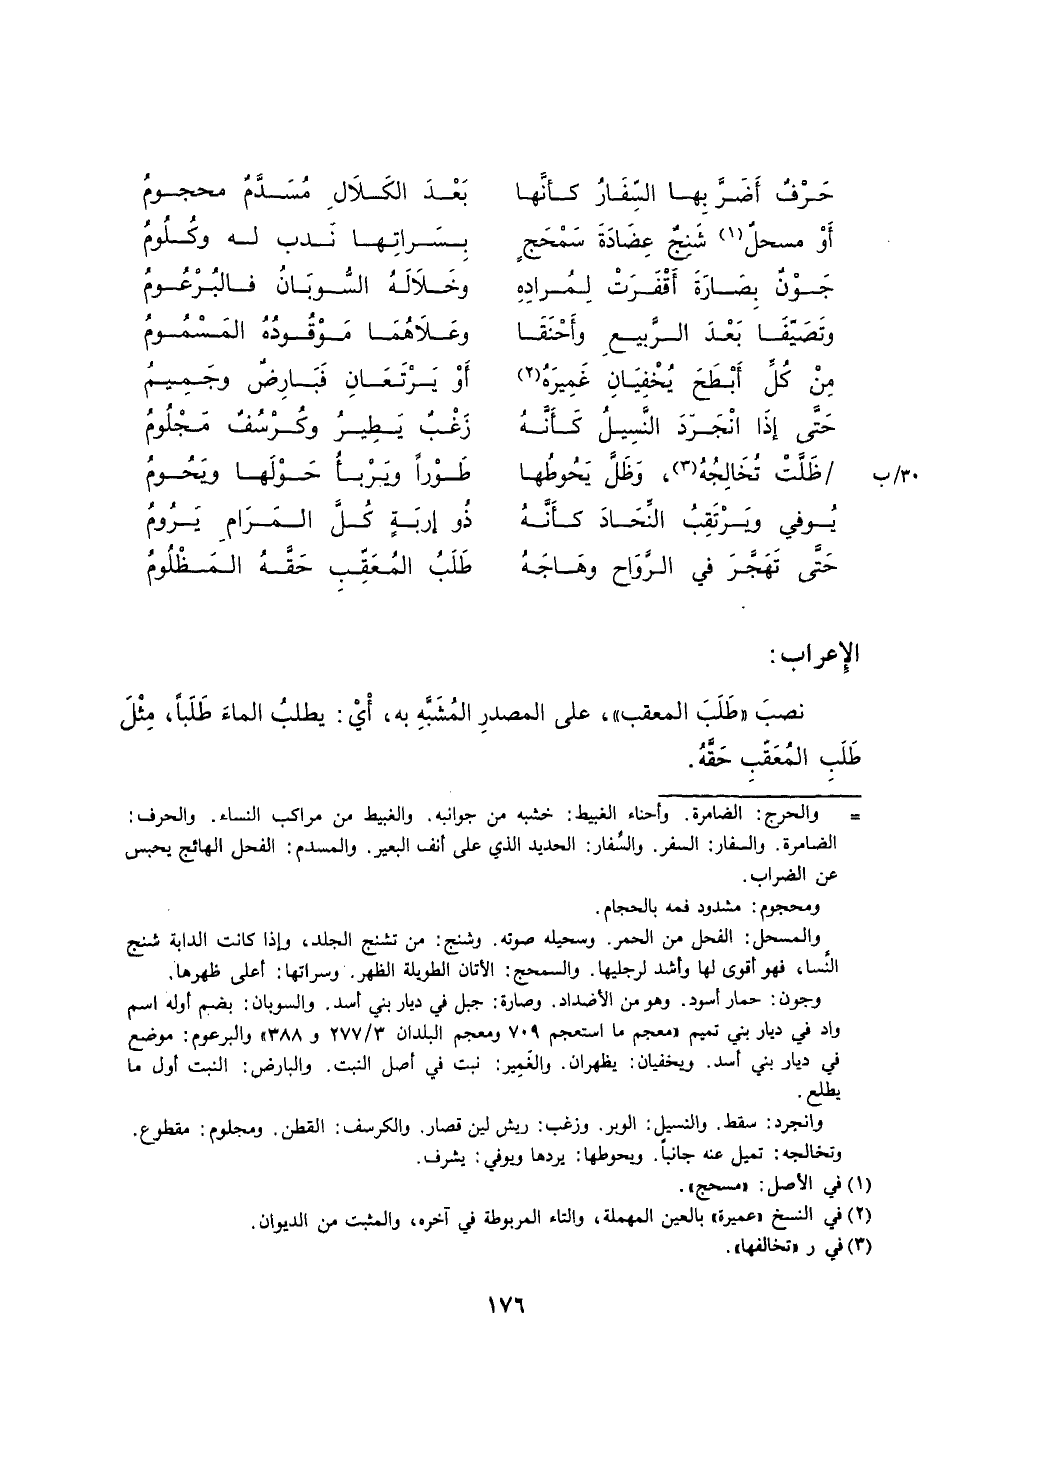 حَرْفٌ أَضَرَّ بِهـا السِّفَـارُ كـأنَّها بَعْـدَ الكَـلَالِ مُسَـدَّمٌ محجـومُ
أَوْ مسحلٌ(١) شَنِجٌ عِضَادَةَ سَمْحَجٍ بِـسَـراتِـهـا نَـدب لـه وكُـلُومُ
جَـوْنٌ بِصَـارَةَ أَقْفَـرَتْ لِـمُـرادِهِ وخَـلَالَـهُ السُّوبَـانُ فـالبُـرْعُـومُ
وتَصَيَّفَـا بَعْـدَ الـرَّبيـعِ وأَحْنَقَـا وعَـلَاهُمَـا مَـوْقُـودُهُ المَسْمُـومُ
مِنْ كُلِّ أَبْطَحَ يُخْفِيَانِ غَمِيرَهُ(٢) أَوْ يَـرْتَعَـانِ فَبَـارِضٌ وجَـمِيـمُ
حَتَّى إذَا انْجَـرَدَ النَّسِيلُ كَـأَنَّـهُ زَغْـبٌ يَـطِيـرُ وكُـرْسُفٌ مَـجْلُومُ
/ظَلَّتْ تُخَالِجُهُ(٣)، وَظَلَّ يَحُوطُها طَـوْراً ويَـرْبـأُ حَـوْلَهـا ويَحُـومُ ٣٠/ب
يُـوفي ويَـرْتَقِبُ النِّجَـادَ كـأَنَّـهُ ذُو إربَـةٍ كُـلَّ الـمَـرَامِ يَـرُومُ
حَتَّى تَهَجَّـرَ في الـرَّوَاحِ وهَـاجَـهُ طَلَبُ المُعَقِّـبِ حَقَّـهُ الـمَـظْلُومُ
الإعراب:
نصبَ «طَلَبَ المعقب»، على المصدرِ المُشَبَّهِ به، أَيْ: يطلبُ الماءَ طَلَباً، مِثْلَ
طَلَبِ المُعَقِّبِ حَقَّهُ.
= والحرج: الضامرة. وأحناء الغبيط: خشبه من جوانبه. والغبيط من مراكب النساء. والحرف:
الضامرة. والسفار: السفر. والسِّفار: الحديد الذي على أنف البعير. والمسدم: الفحل الهائج يحبس
عن الضراب.
ومحجوم: مشدود فمه بالحجام.
والمسحل: الفحل من الحمر. وسحيله صوته. وشنج: من تشنج الجلد، وإذا كانت الدابة شنج
النَّسا، فهو أقوى لها وأشد لرجليها. والسمحج: الأتان الطويلة الظهر. وسراتها: أعلى ظهرها.
وجون: حمار أسود. وهو من الأضداد. وصارة: جبل في ديار بني أسد. والسوبان: بضم أوله اسم
واد في ديار بني تميم «معجم ما استعجم ٧٠٩ ومعجم البلدان ٢٧٧/٣ و ٣٨٨» والبرعوم: موضع
في ديار بني أسد. ويخفيان: يظهران. والغَمِير: نبت في أصل النبت. والبارض: النبت أول ما
يطلع.
وانجرد: سقط. والنسيل: الوبر. وزغب: ريش لين قصار. والكرسف: القطن. ومجلوم: مقطوع.
وتخالجه: تميل عنه جانباً. ويحوطها: يردها ويوفي: يشرف.
(١) في الأصل: «مسحج».
(٢) في النسخ «عميرة» بالعين المهملة، والتاء المربوطة في آخره، والمثبت من الديوان.
(٣) في ر «تخالفها».
١٧٦